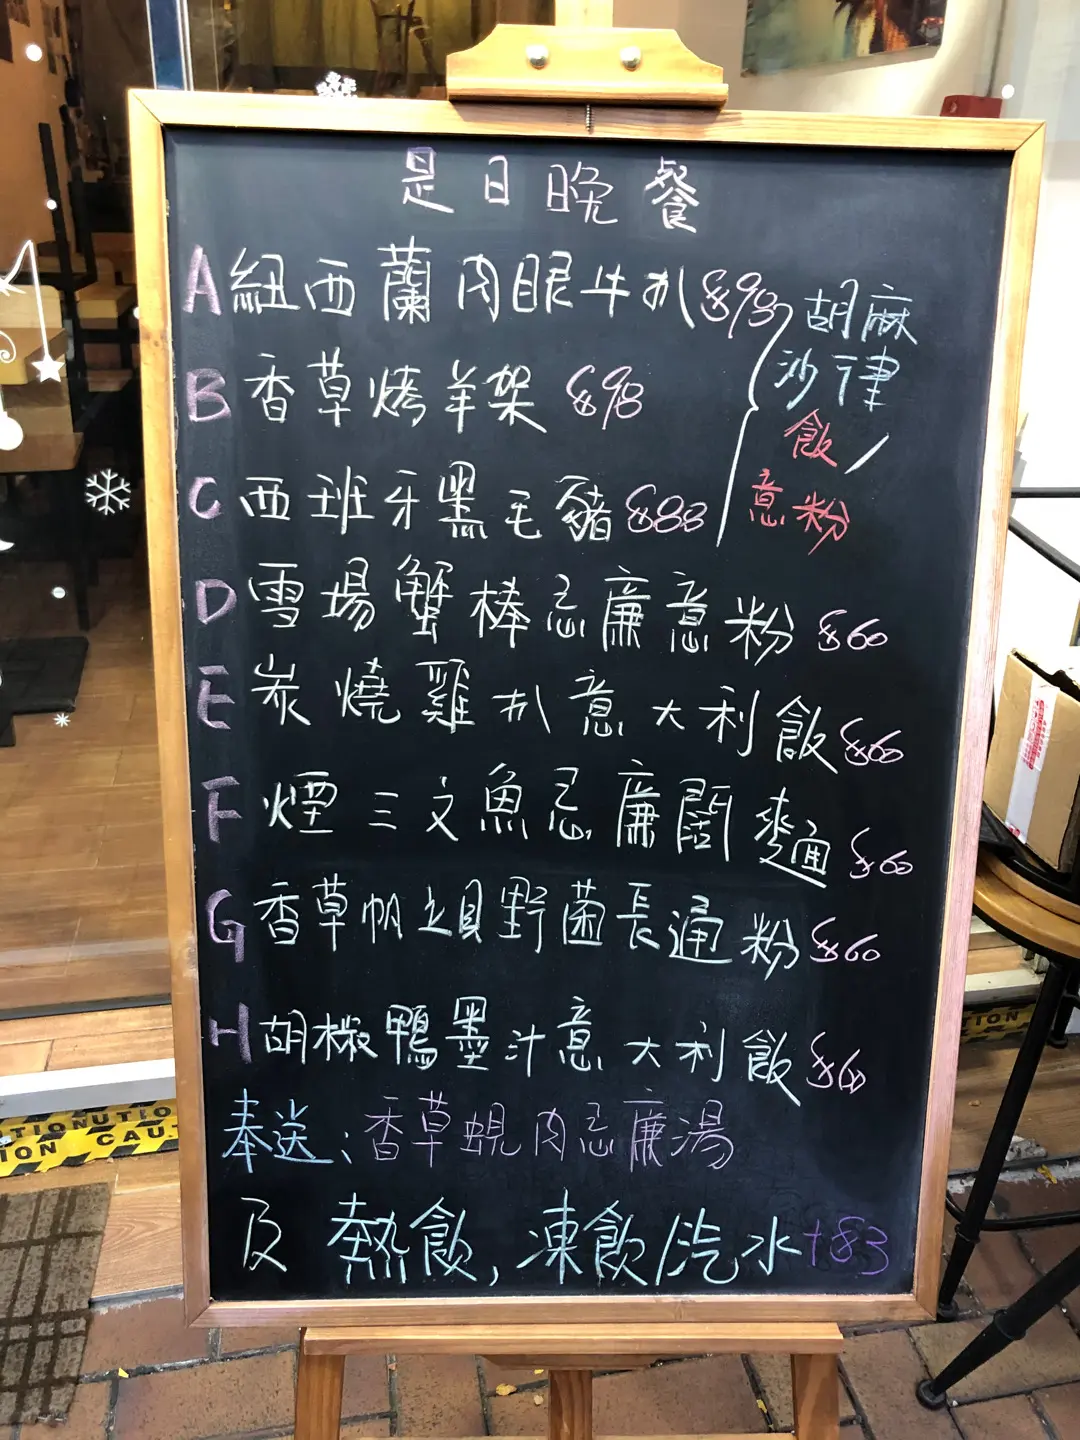 是日晚餐
A 紐西蘭肉眼牛扒 $98
胡麻
沙律
飯/
意粉
B 香草烤羊架 $98
C 西班牙黑毛豬 $88
D 雪場蟹棒忌廉意粉 $60
E 炭燒雞扒意大利飯 $60
F 煙三文魚忌廉闊麵 $60
G 香草帆立貝野菌長通粉 $60
H 胡椒鴨墨汁意大利飯 $60
奉送：香草蜆肉忌廉湯
及 熱飲, 凍飲/汽水+$3
CAUTION